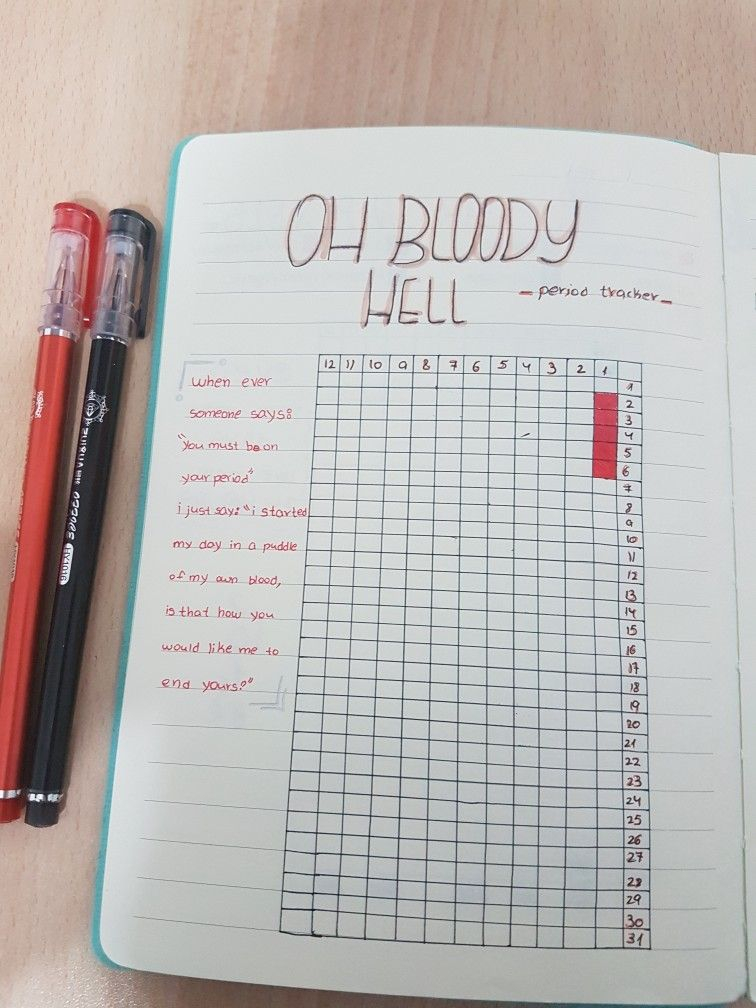 OH BLOODY
HELL
- period tracker -
12 11 10 9 8 7 6 5 4 3 2 1
when ever
someone says:
"you must be on
your period"
i just say: "i started
my day in a puddle
of my own blood,
is that how you
would like me to
end yours?"
1
2
3
4
5
6
7
8
9
10
11
12
13
14
15
16
17
18
19
20
21
22
23
24
25
26
27
28
29
30
31